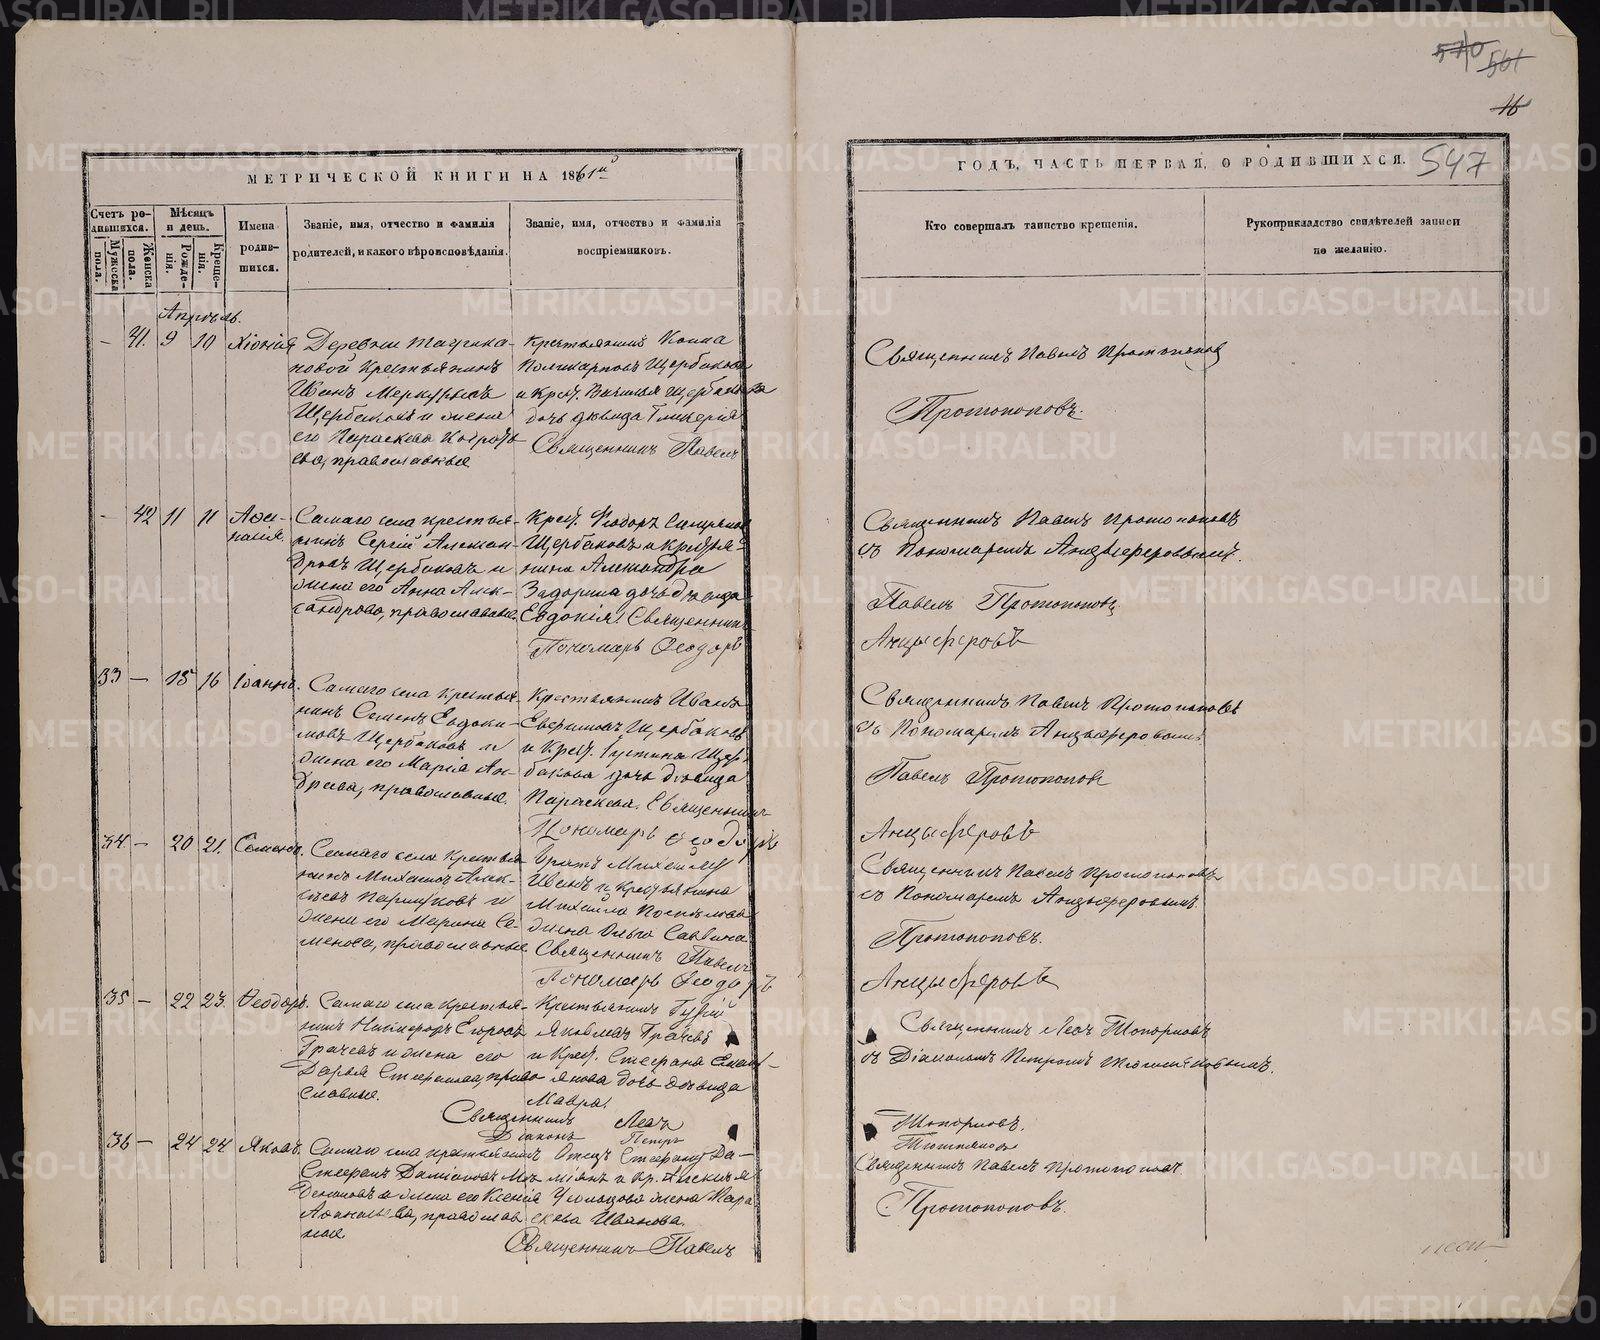 570 561
16
МЕТРИЧЕСКОЙ КНИГИ НА 1861й
Счетъ ро-
дившихся.
Мужеска
пола.
Женска
пола.
Мѣсяцъ
и день.
Рожде-
нія.
Креще-
нія.
Имена
родив-
шихся.
Званіе, имя, отчество и фамилія
родителей, и какого вѣроисповѣданія.
Званіе, имя, отчество и фамилія
воспріемниковъ.
Апрѣль.
— 41. 9 10 Хіонія
Деревни
новой Крестьянинъ
Иванъ Меркурьевъ
Щербаковъ и жена
его Параскева
ева, православные
Крестьянинъ
Поликарповъ Щербаковъ
и Крест. Василья Щербакова
дочь дѣвица Гликерія
Священникъ Павелъ
— 42 11 11
Самаго села крестья-
нинъ Сергій Алексан-
дровъ Щербаковъ и
жена его Анна Алек-
сандрова, православные.
Крест. Ѳеодоръ
Щербаковъ и Крестья-
нина Александра
Задорина дочь дѣвица
Евдокія. Священникъ
Пономарь Ѳеодоръ
33 — 15 16 Іоаннъ.
Самаго села Крестья-
нинъ Семенъ Евдоки-
мовъ Щербаковъ и
жена его Марія Ан-
дреева, православные.
Крестьянинъ Иванъ
Щербаковъ
и Крест. Іустина Щер-
бакова дочь дѣвица
Параскева. Священникъ
Пономарь Ѳеодоръ
34 — 20 21. Семенъ.
Самаго села Крестья-
нинъ Михаилъ Алек-
сѣевъ и
жена его Марина Се-
менова, православные
братъ Михаилу
Иванъ и Крестьянина
Михаила Поспѣлова
жена Ольга Саввина.
Священникъ Павелъ
Пономарь Ѳеодоръ
35 — 22 23 Ѳеодоръ.
Самаго села Крестья-
нинъ Никифоръ Егоровъ
Грачевъ и жена его
Дарья Стефанова, право-
славные.
Крестьянинъ Гурій
Яковлевъ Грачевъ
и Крест. Стефана
дочь дѣвица
Мавра.
Священникъ Левъ
Діаконъ Петръ
36 — 24 24 Яковъ.
Самаго села крестьянинъ
Стефанъ Даміановъ
и жена его Ксенія
православ-
ные
Отецъ Стефану Да-
міанъ и Кр. Алексѣя
жена Пара-
скева Иванова.
Священникъ Павелъ
ГОДЪ, ЧАСТЬ ПЕРВАЯ, О РОДИВШИХСЯ. 547
Кто совершалъ таинство крещенія.
Рукоприкладство свидѣтелей записи
по желанію.
Священникъ Павелъ Протопоповъ
Протопоповъ.
Священникъ Павелъ Протопоповъ
съ Пономаремъ Анцыферовымъ.
Павелъ Протопоповъ
Анцыферовъ
Священникъ Павелъ Протопоповъ
съ Пономаремъ Анцыферовымъ
Павелъ Протопоповъ
Анцыферовъ
Священникъ Павелъ Протопоповъ
съ Пономаремъ Анцыферовымъ.
Протопоповъ.
Анцыферовъ
Священникъ Левъ Топорковъ
съ Діакономъ Петромъ
Топорковъ.
Священникъ Павелъ Протопоповъ
Протопоповъ.
METRIKI.GASO-URAL.RU